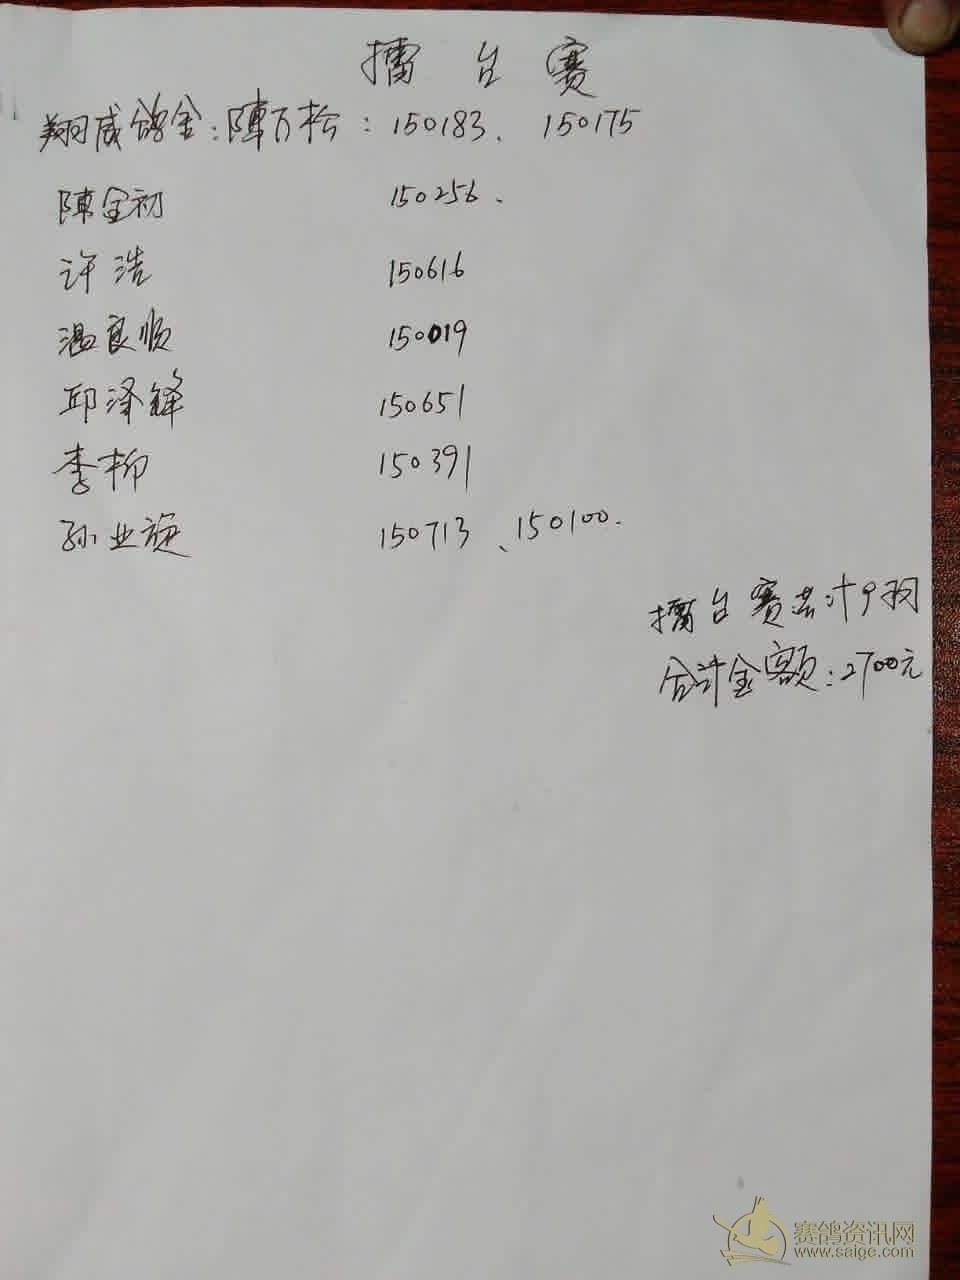 擂台赛
翔威鸽舍:陳万松:150183、150175
陳金初 150256、
许浩 150616
温良顺 150019
邱泽锋 150651
李柳 150391
孙业旋 150713、150100.
擂台赛共计9羽
合计金额:2700元
赛鸽资讯网
www.saige.com